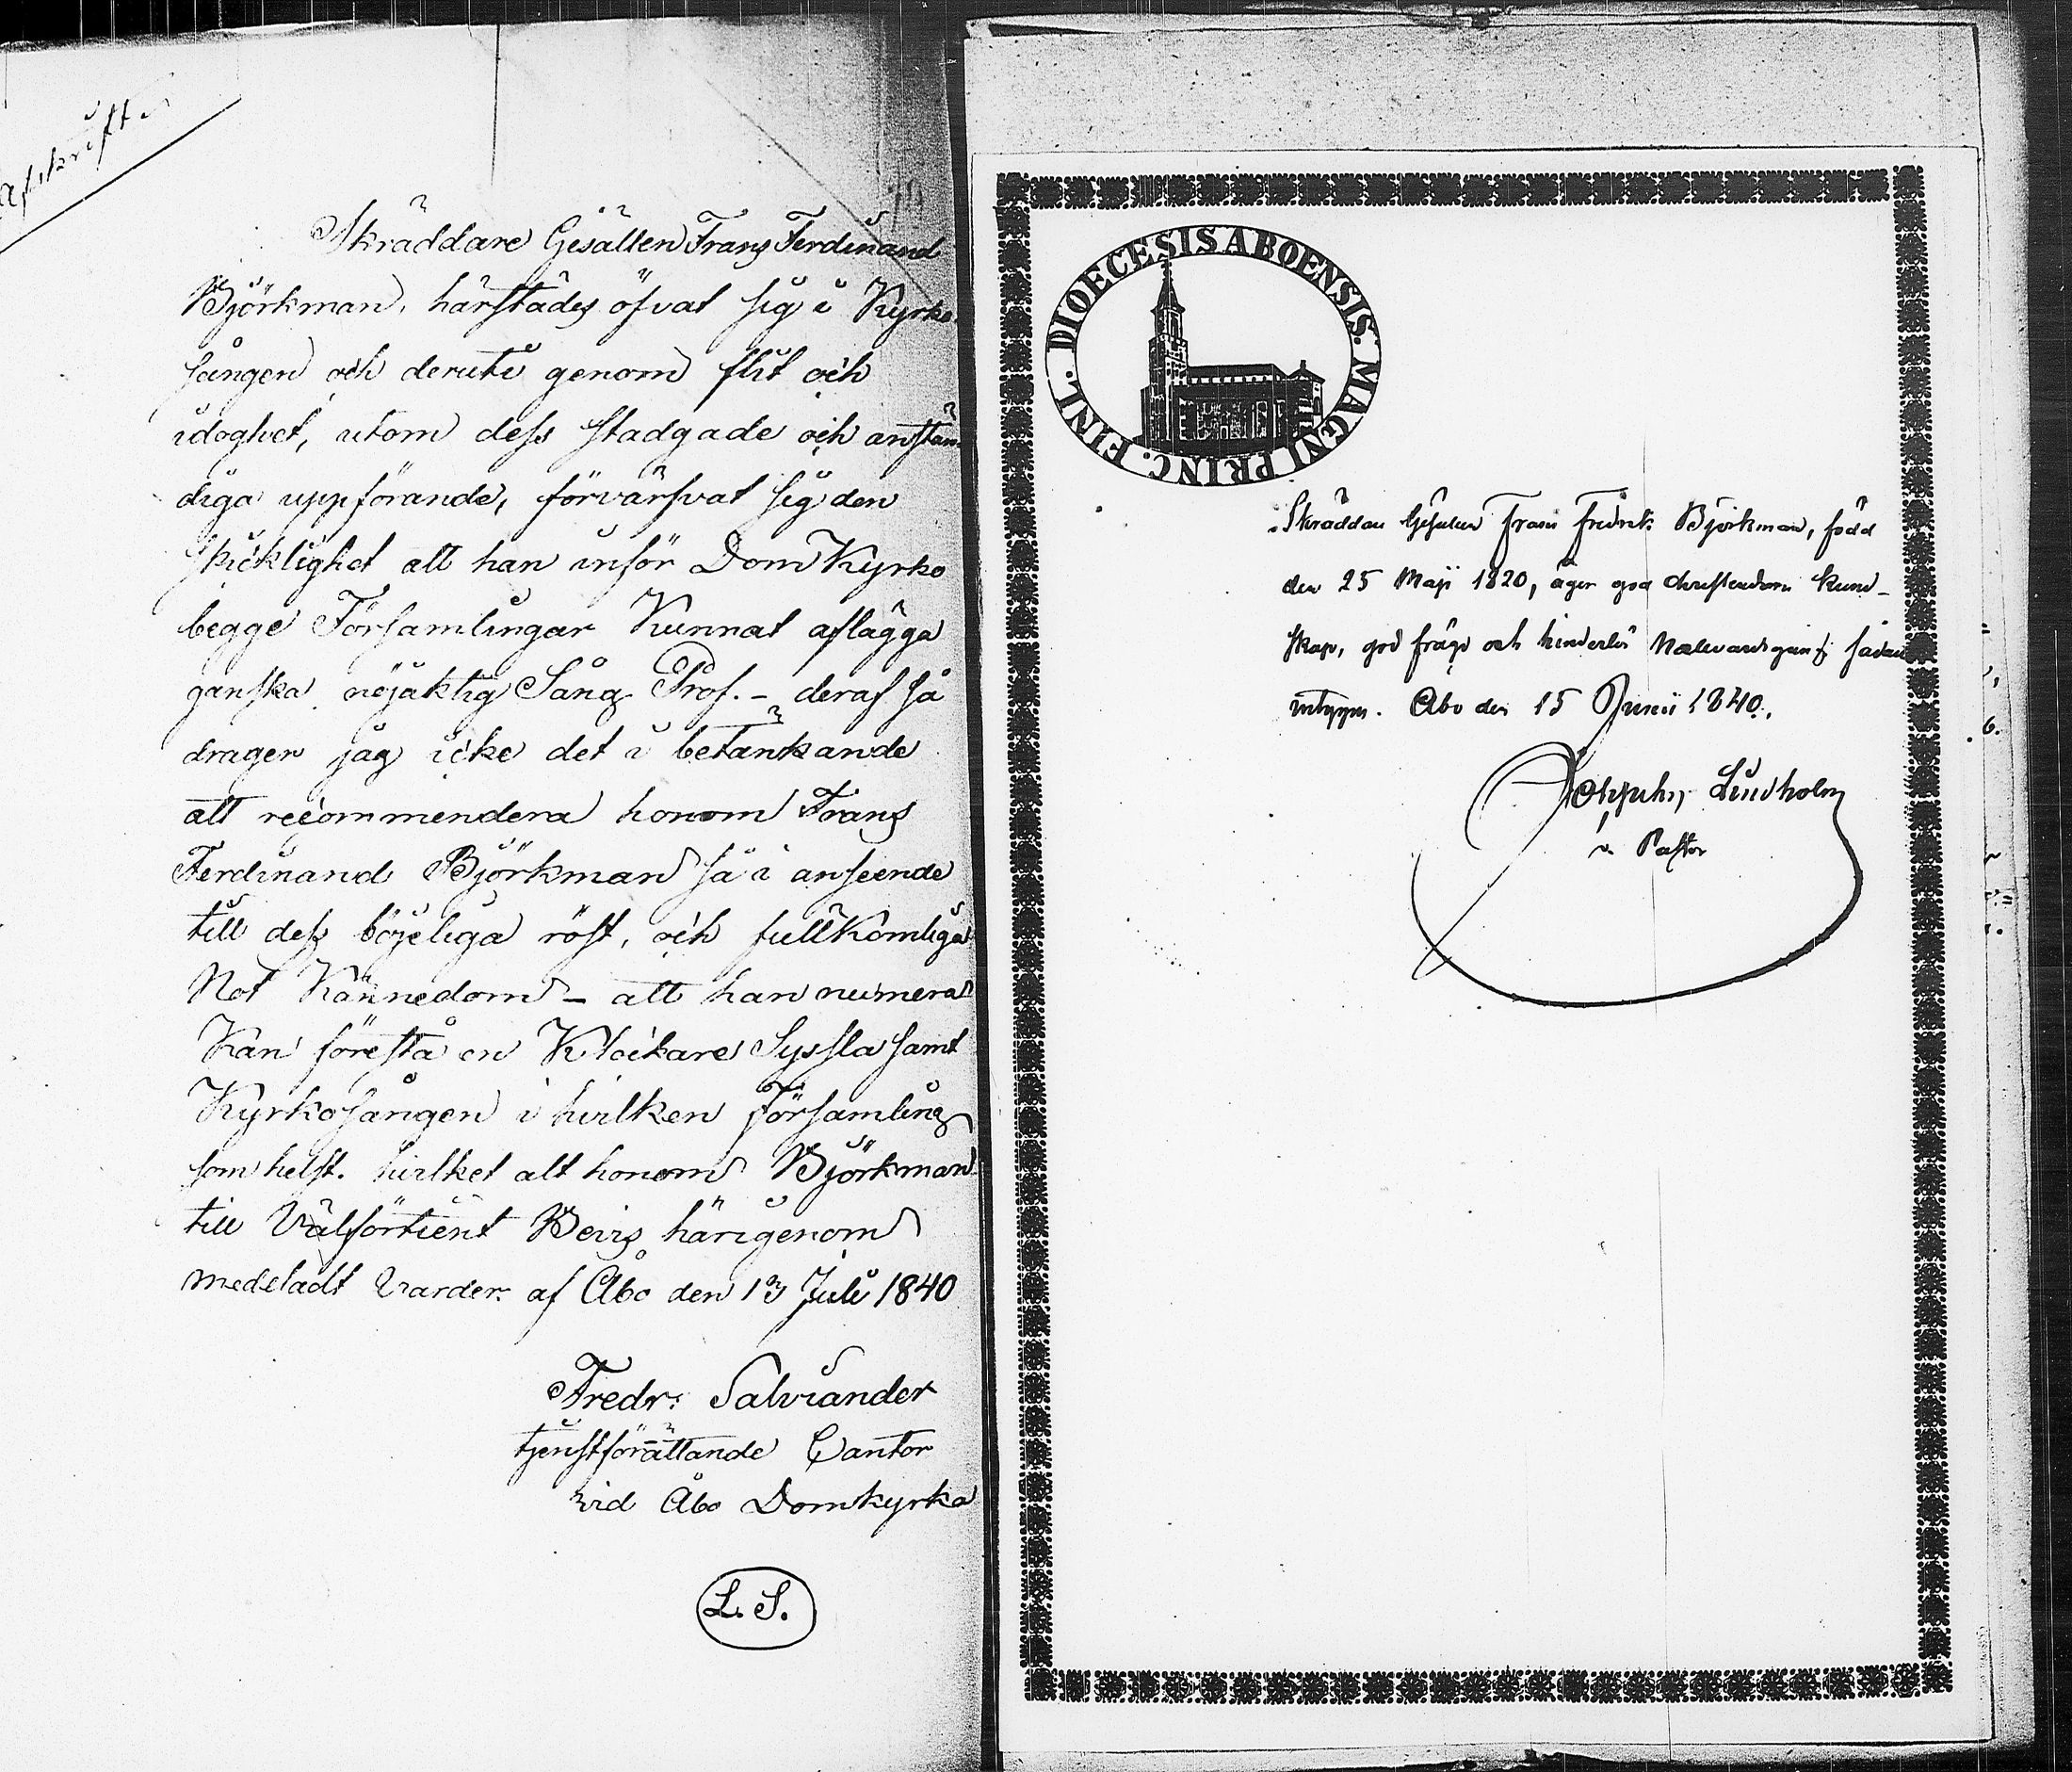 Afskrift
Skräddare Gesällen Frans Ferdinand
Björkman, härstädes öfvat sig i Kyrko
sången och deruti genom flit och
idoghet, utom dess stadgade och anstän
diga uppförande, förvärfvat sig den
skicklighet att han inför Dom Kyrko
begge Församlingar Kunnat aflägga
ganska nöjaktig Sång Prof. - deraf så
drager jag icke det i betänkande
att recommendera honom Frans
Ferdinand Björkman så i anseende
till dess böjeliga röst, och fullkomliga
Not Kännedom - att han numera
Kan förestå en Klockare Syssla samt
Kyrkosången i hvilken Församling
som helst. hvilket alt honom Björkman
till Välförtient Bevis härigenom
medeladt varder. af Åbo den 13 Juli 1840
Fredr: Salviander
tjenstförättande Cantor
vid Åbo Domkyrka
L. S.
DIOECESIS ABOENSIS. MAGNI PRINC. FINL.
Skräddare Gesellen Frans Fredrik Björkman, född
den 25 Maji 1820, äger god christendoms kund-
skap, god frägd och hinderlös Nattvardsgång; sådan
intygas. Åbo den 15 Junii 1840.
Lindholm
v. Pastor